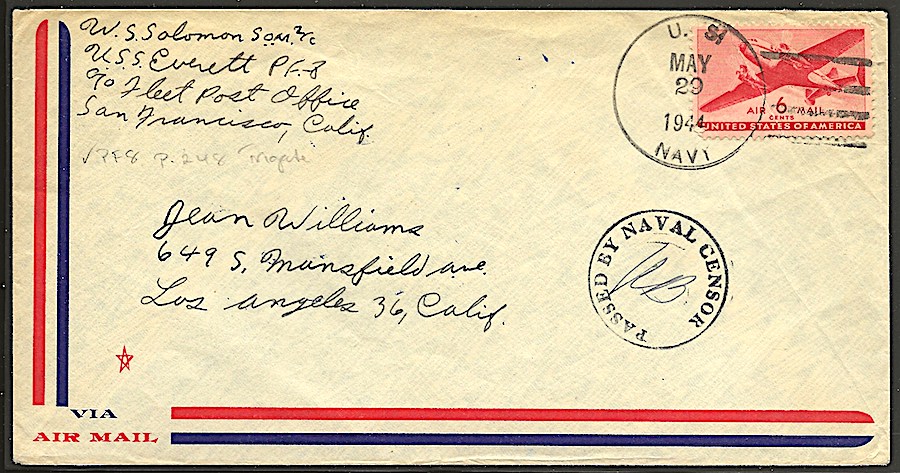 W. S. Solomon SoM. 2/c
U.S.S. Everett PF-8
c/o Fleet Post Office
San Francisco, Calif.
PF8 p. 248 frigate
U. S.
MAY
29
1944
NAVY
AIR 6 MAIL
CENTS
UNITED STATES OF AMERICA
Jean Williams
649 S. Mansfield ave.
Los angeles 36, Calif.
PASSED BY NAVAL CENSOR
VIA
AIR MAIL